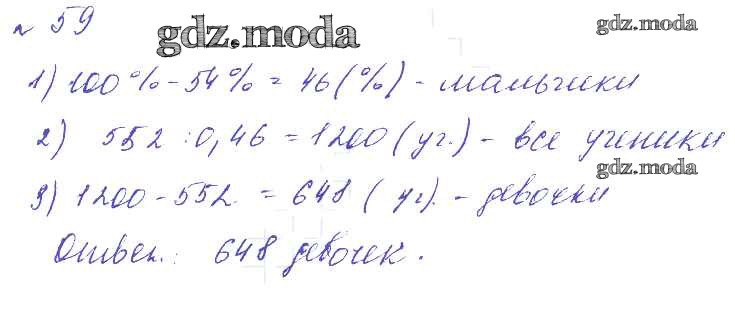 № 59
gdz.moda gdz.moda
1) 100% - 54% = 46 (%) - мальчики
2) 552 : 0,46 = 1200 (уч.) - все ученики
gdz.moda
3) 1200 - 552 = 648 (уч). - девочки
Ответ.: 648 девочек.